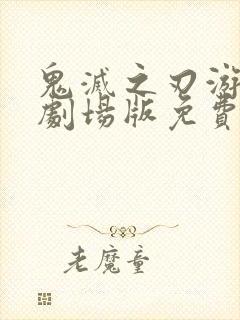 鬼滅之刃游
劇場版免費
老魔童